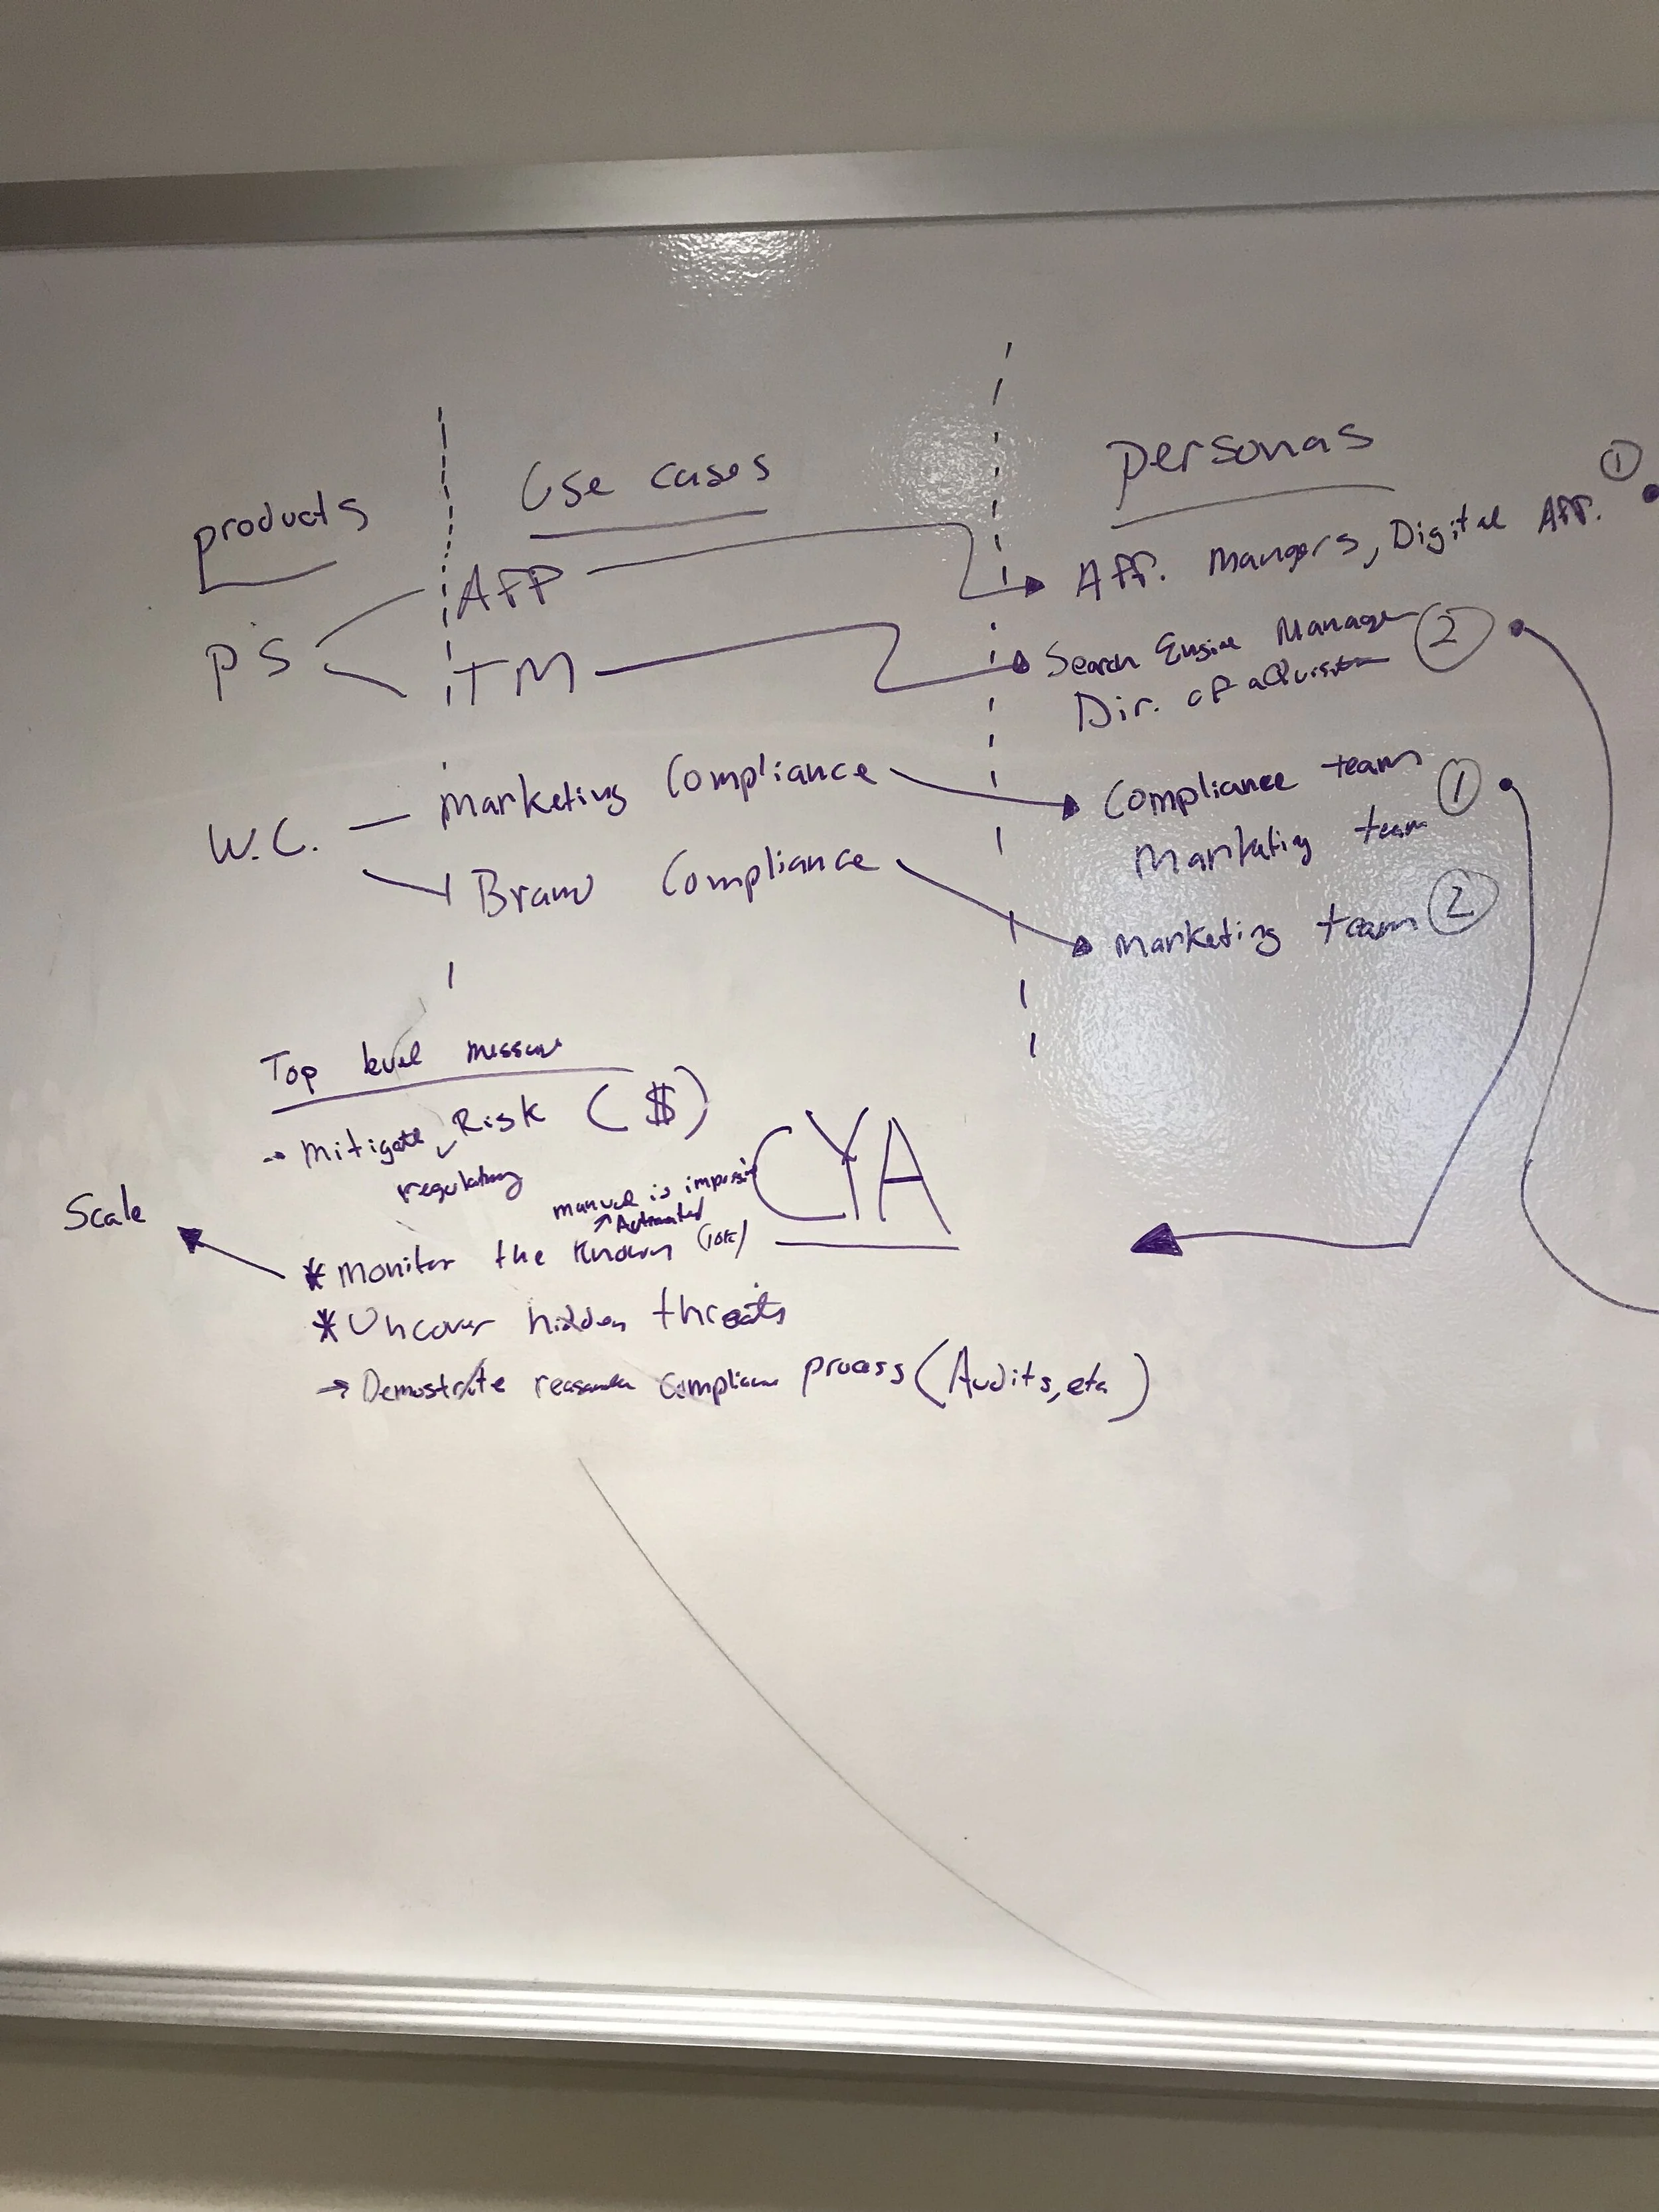 products
Use cases
personas
①
PS
AFF
Aff. Mangers, Digital Aff.
TM
Search Engine Manager ②
Dir. of aquisition
W.C.
Marketing Compliance
Compliance team ①
Marketing team
Brand Compliance
Marketing team ②
Top level message
→ Mitigate Risk ($)
regulatory
CYA
Scale
manual is
Automated
* Monitor the known (10k)
* Uncover hidden threats
→ Demostrate compliance process (Audits, etc)